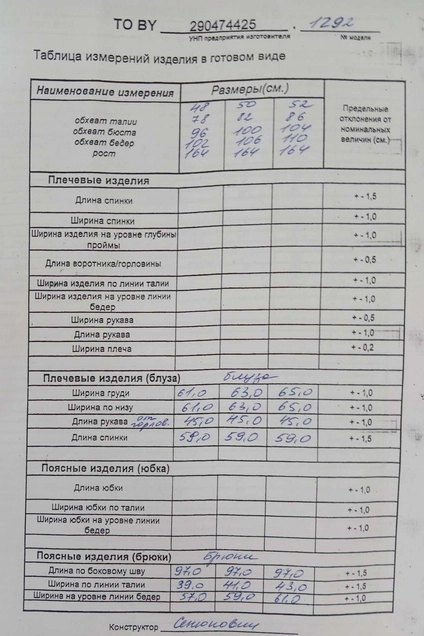 ТО BY 290474425 . 1292
УНП предприятия изготовителя № модели
Таблица измерений изделия в готовом виде
Наименование измерения Размеры(см.) Предельные отклонения от номинальных величин (см.)
48 50 52
обхват талии 78 82 86
обхват бюста 96 100 104
обхват бедер 102 106 110
рост 164 164 164
Плечевые изделия
Длина спинки + - 1,5
Ширина спинки + - 1,0
Ширина изделия на уровне глубины проймы + - 1,0
Длина воротника/горловины + - 0,5
Ширина изделия по линии талии + - 1,0
Ширина изделия на уровне линии бедер + - 1,0
Ширина рукава + - 0,5
Длина рукава + - 1,0
Ширина плеча + - 0,2
Плечевые изделия (блуза) блуза
Ширина груди 61,0 63,0 65,0 + - 1,0
Ширина по низу 61,0 63,0 65,0 + - 1,0
Длина рукава от горлов. 45,0 45,0 45,0 + - 1,0
Длина спинки 59,0 59,0 59,0 + - 1,5
Поясные изделия (юбка)
Длина юбки + - 1,0
Ширина юбки по талии + - 1,0
Ширина юбки на уровне линии бедер + - 1,0
Поясные изделия (брюки) брюки
Длина по боковому шву 97,0 97,0 97,0 + - 1,5
Ширина по линии талии 39,0 41,0 43,0 + - 1,5
Ширина на уровне линии бедер 57,0 59,0 61,0 + - 1,0
Конструктор